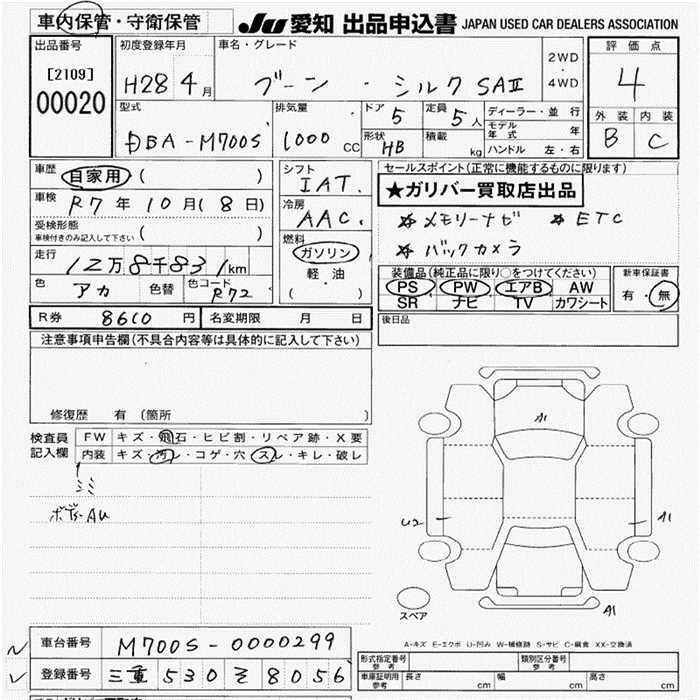 車内保管・守衛保管
JU 愛知 出品申込書 JAPAN USED CAR DEALERS ASSOCIATION
出品番号 初度登録年月 車名・グレード 評価点
[2109] H28年4月 ブーン・シルク SAⅡ 2WD・4WD 4
00020
型式 排気量 ドア 5 定員 5人 ディーラー・並行 外装 内装
DBA-M700S 1000 CC 形状 HB 積載 kg モデル年式 年 B C
ハンドル 左・右
車歴 自家用 ( ) シフト IAT. セールスポイント(正常に機能するものに限ります)
車検 R7年10月(8日) 冷房 AAC. ★ガリバー買取店出品
受検形態 車検付きのみ記入して下さい ( ) ☆メモリーナビ ☆ETC
燃料 ガソリン 軽油 ( ) ☆バックカメラ
走行 12万8千831km
色 アカ 色替 色コード R72
装備品(純正品に限り○をつけてください) 新車保証書
PS PW エアB AW 有・無
SR ナビ TV カワシート
R券 8610円 名変期限 月 日 後日品
注意事項申告欄(不具合内容等は具体的に記入して下さい)
修復歴 有 (箇所 )
検査員記入欄 FW キズ・飛石・ヒビ割・リペア跡・X要
内装 キズ・汚レ・コゲ・穴・スレ・キレ・破レ
シミ
A1
U2
A1
A1
スペア
A-キズ E-エクボ U-凹み W-補修跡 S-サビ C-腐食 XX-交換済
車台番号 M700S-0000299
登録番号 三重 530 そ 8056
形式指定番号 参考 類別区分番号 参考
車庫証明用 参考 長さ cm 幅 cm 高さ cm